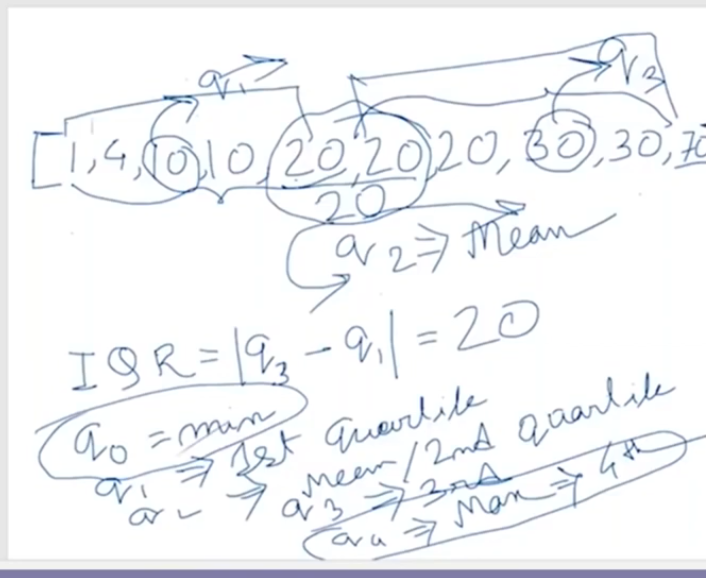 q₁
q₃
[1, 4, 10, 10, 20, 20, 20, 30, 30, 70
20
q₂ ⇒ Mean
IQR = |q₃ - q₁| = 20
q₀ = min
q₁ ⇒ 1st quartile
⇒ Mean / 2nd quartile
q₃ ⇒ 3rd
q₄ ⇒ Max ⇒ 4th